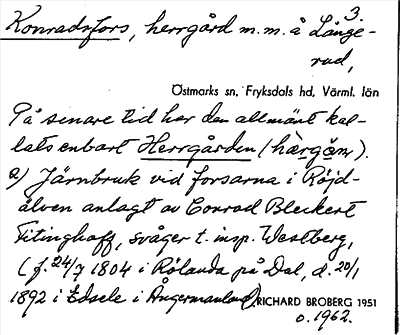 3.
Konradsfors, herrgård m.m. å Långe-
rud,
Östmarks sn, Fryksdals hd, Värml. län
På senare tid har den allmänt kal-
lats enbart Herrgården (hàrgǫ̈n).
a) Järnbruk vid forsarna i Röjd-
älven anlagt av Conrad Bleckert
Fitinghoff, svåger t. insp. Westberg,
(f. 24/7 1804 i Rölanda på Dal, d. 20/1
1892 i Edsele i Ångermanland). RICHARD BROBERG 1951
o. 1962.